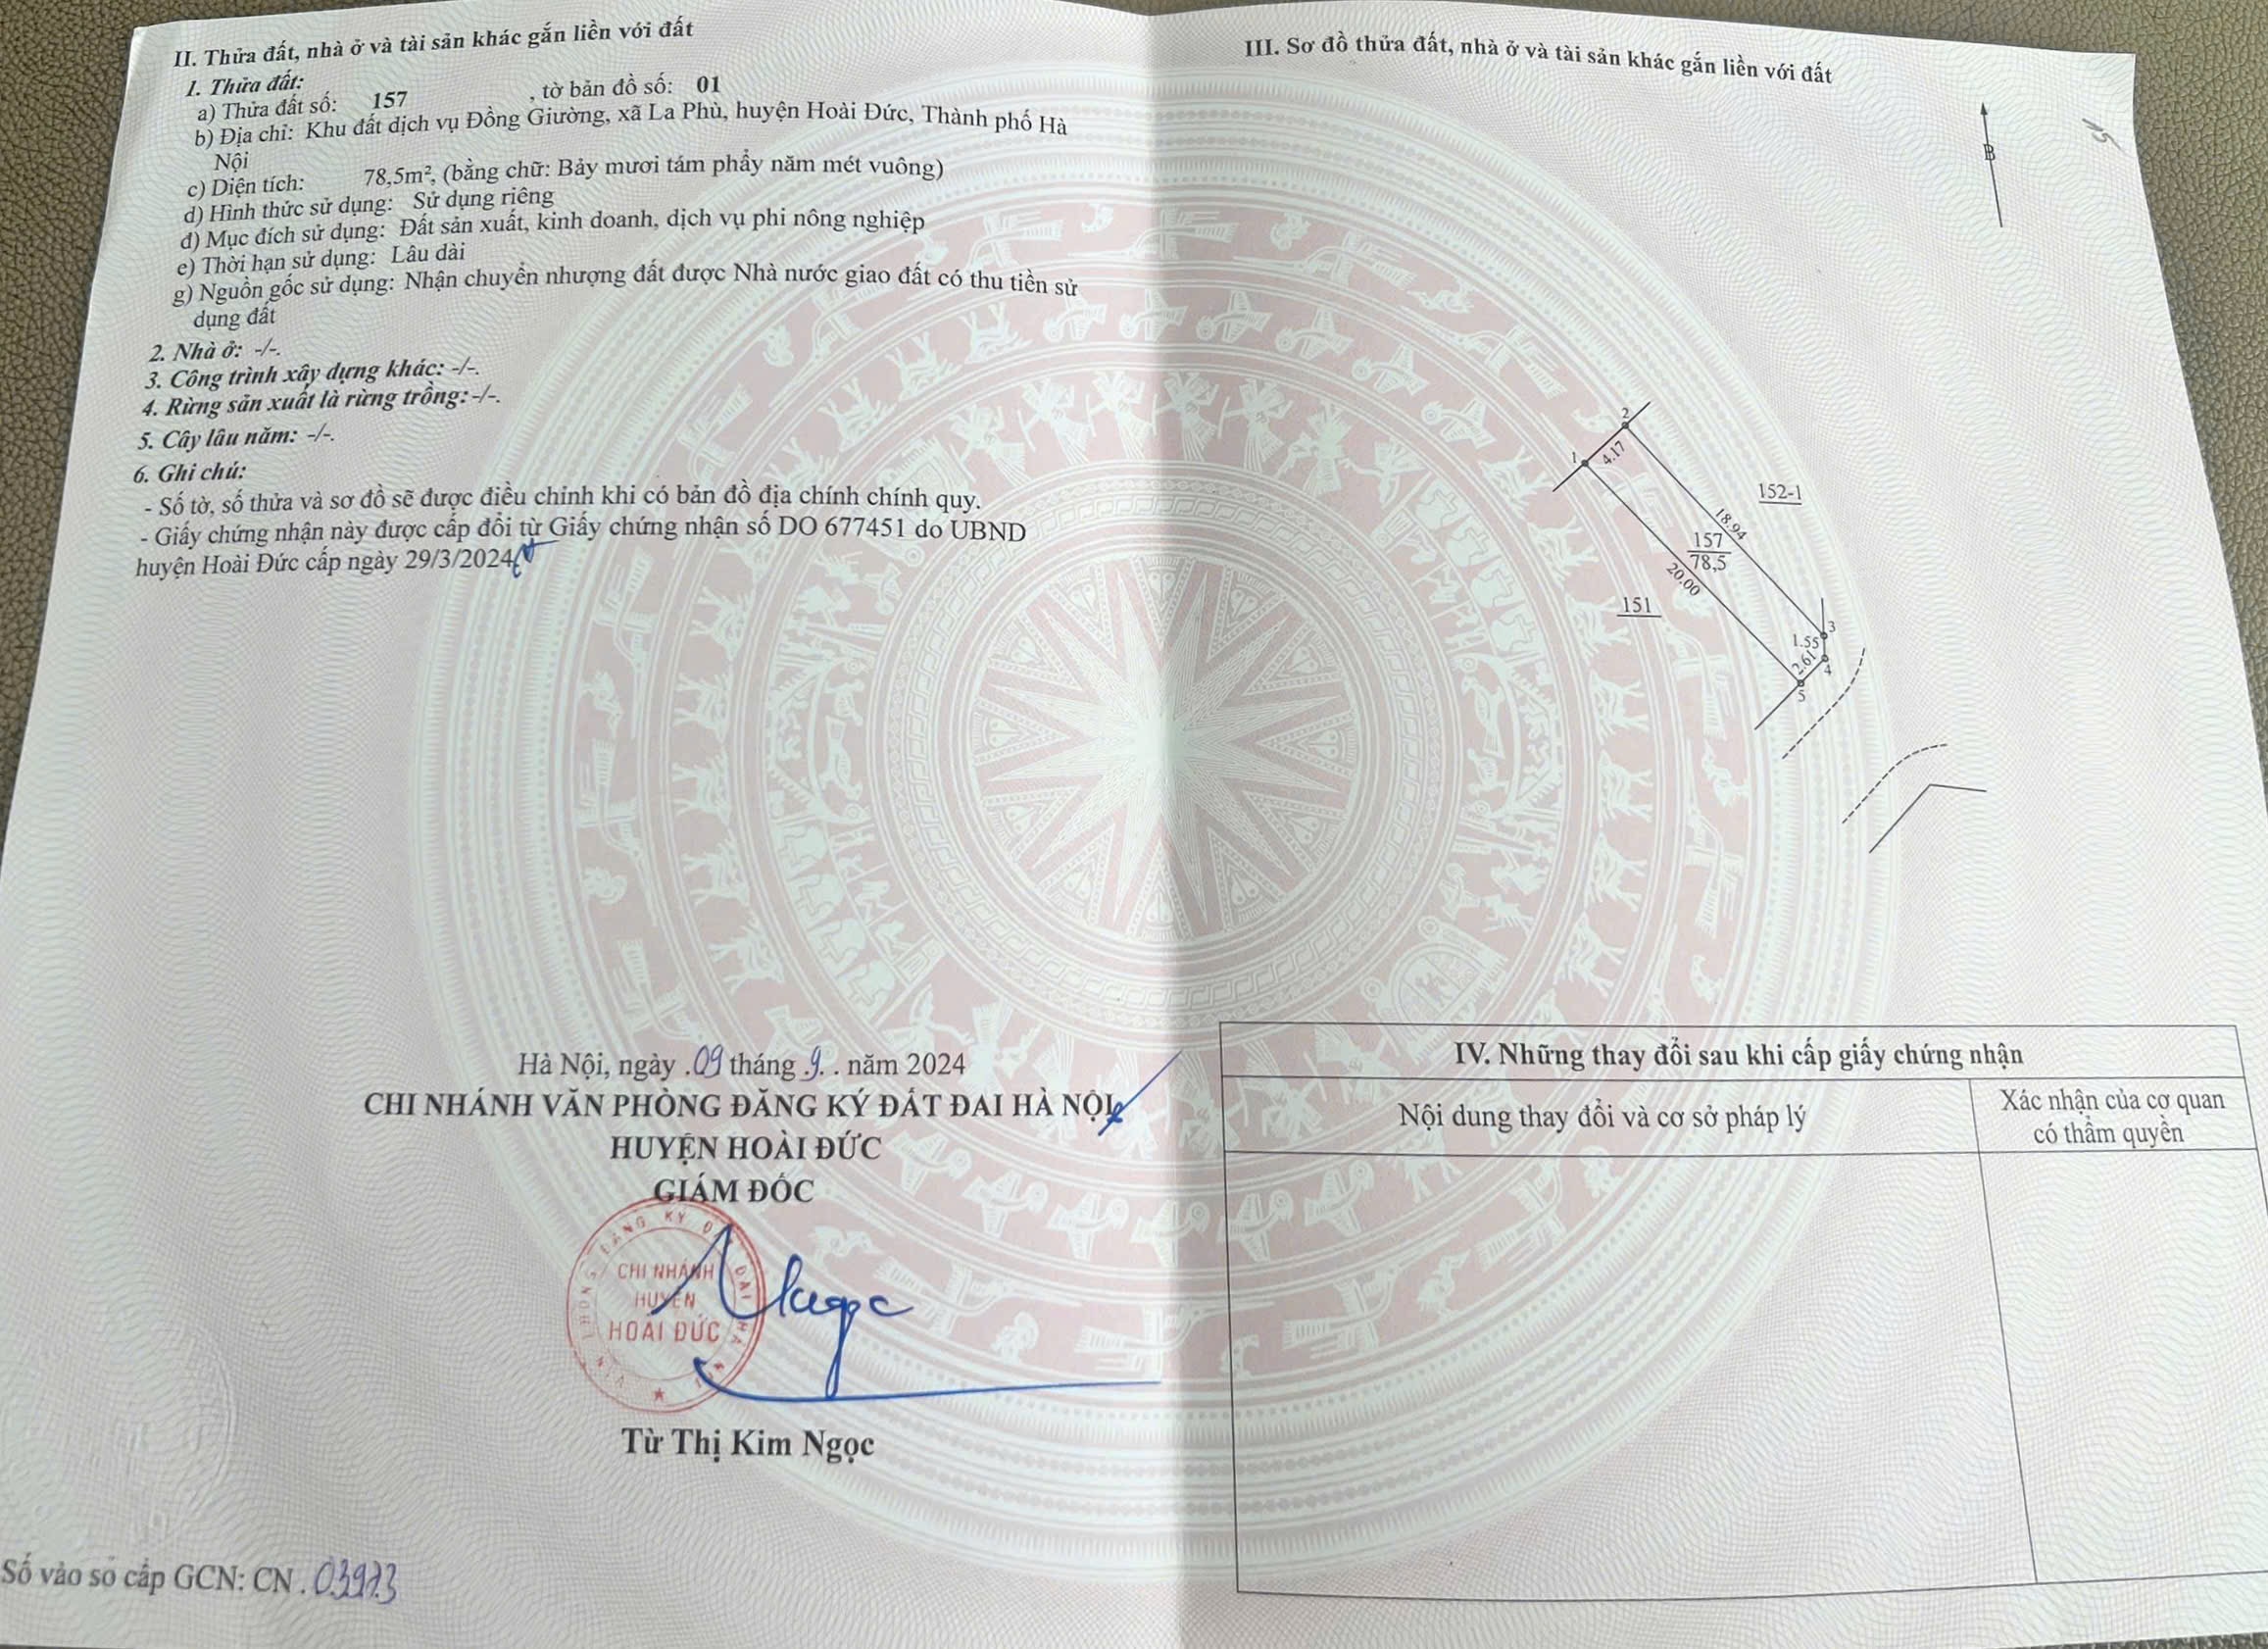 II. Thửa đất, nhà ở và tài sản khác gắn liền với đất
1. Thửa đất:
a) Thửa đất số: 157 , tờ bản đồ số: 01
b) Địa chỉ: Khu đất dịch vụ Đồng Giường, xã La Phù, huyện Hoài Đức, Thành phố Hà
Nội
c) Diện tích: 78,5m², (bằng chữ: Bảy mươi tám phẩy năm mét vuông)
d) Hình thức sử dụng: Sử dụng riêng
đ) Mục đích sử dụng: Đất sản xuất, kinh doanh, dịch vụ phi nông nghiệp
e) Thời hạn sử dụng: Lâu dài
g) Nguồn gốc sử dụng: Nhận chuyển nhượng đất được Nhà nước giao đất có thu tiền sử
dụng đất
2. Nhà ở: -/-.
3. Công trình xây dựng khác: -/-.
4. Rừng sản xuất là rừng trồng: -/-.
5. Cây lâu năm: -/-.
6. Ghi chú:
- Số tờ, số thửa và sơ đồ sẽ được điều chỉnh khi có bản đồ địa chính chính quy.
- Giấy chứng nhận này được cấp đổi từ Giấy chứng nhận số DO 677451 do UBND
huyện Hoài Đức cấp ngày 29/3/2024
Hà Nội, ngày .09 tháng .9. . năm 2024
CHI NHÁNH VĂN PHÒNG ĐĂNG KÝ ĐẤT ĐAI HÀ NỘI
HUYỆN HOÀI ĐỨC
GIÁM ĐỐC
CHI NHÁNH
HUYỆN
HOÀI ĐỨC
Ngọc
Từ Thị Kim Ngọc
Số vào sổ cấp GCN: CN .
III. Sơ đồ thửa đất, nhà ở và tài sản khác gắn liền với đất
B
15
2
1
4.17
152-1
18.94
157
78,5
20.00
151
3
1.55
2.61
4
5
IV. Những thay đổi sau khi cấp giấy chứng nhận
Nội dung thay đổi và cơ sở pháp lý
Xác nhận của cơ quan
có thẩm quyền